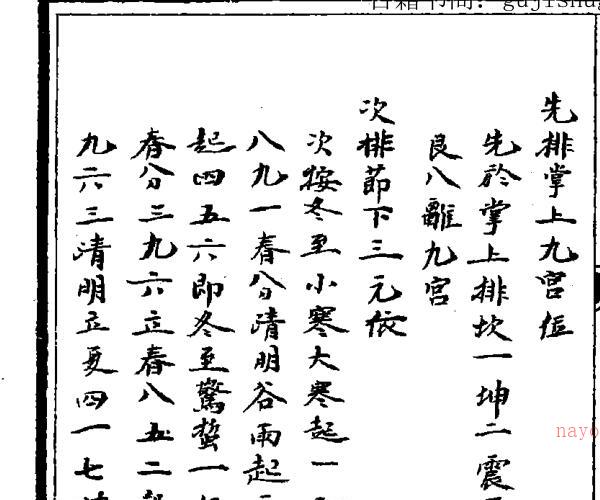 先排掌上九宮位
先於掌上排坎一坤二震
艮八離九宮
次排節下三元依
次按冬至小寒大寒起一
八九一春分清明谷雨起
起四五六即冬至驚蟄一
春分三九六立春八五二
九六三清明立夏四一七
nayo